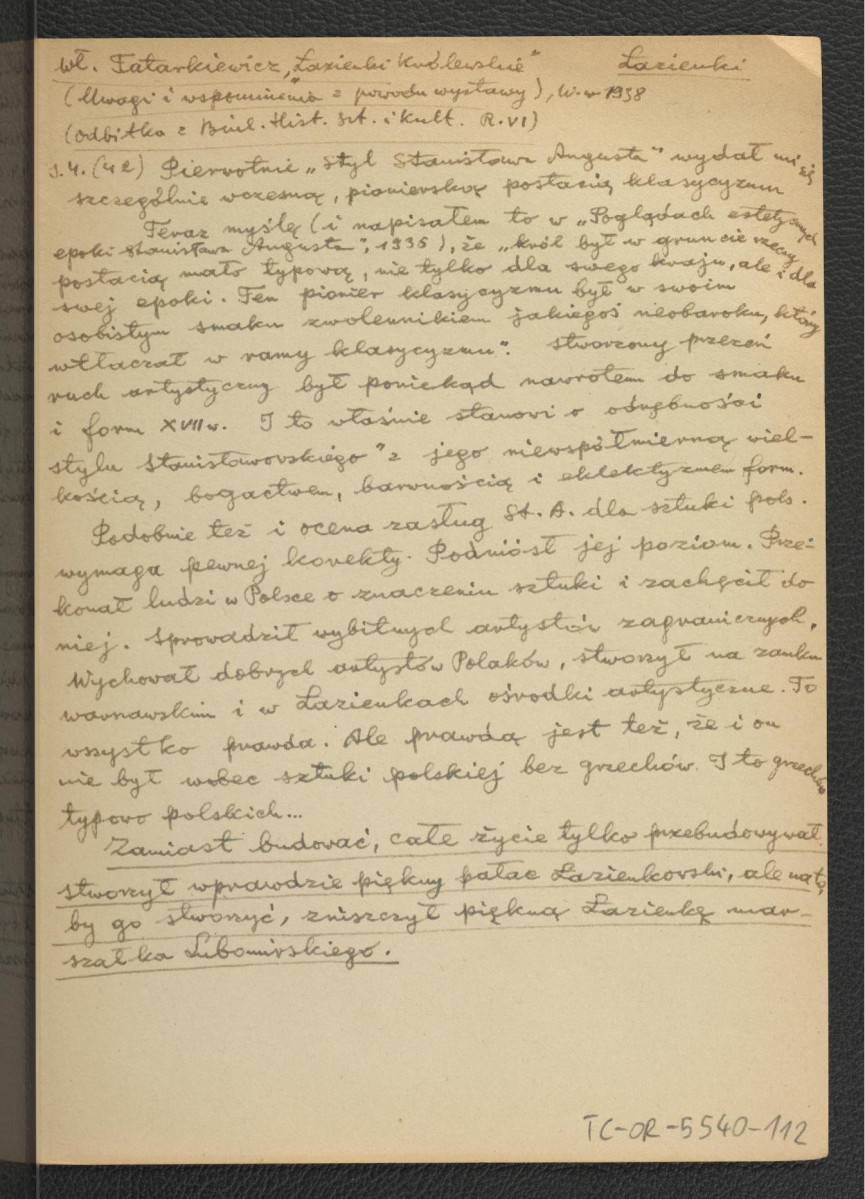 Wł. Tatarkiewicz, „Łazienki Królewskie" Łazienki
(Uwagi i wspomnienia z powodu wystawy), W-w 1938
(Odbitka z Biul. Hist. Szt. i Kult. R. VI)
s. 4. (42) Pierwotnie „styl Stanisława Augusta" wydał mi się
szczególnie wczesną, pionierską postacią klasycyzmu
Teraz myślę (i napisałem to w „Poglądach estetycznych
epoki Stanisława Augusta", 1935), że „król był w gruncie rzeczy
postacią mało typową, nie tylko dla swego kraju, ale i dla
swej epoki. Ten pionier klasycyzmu był w swoim
osobistym smaku zwolennikiem jakiegoś neobaroku, który
wtłaczał w ramy klasycyzmu". Stworzony przezeń
ruch artystyczny był poniekąd nawrotem do smaku
i form XVII w. I to właśnie stanowi o odrębności
stylu stanisławowskiego" z jego niewspółmierną wiel-
kością, bogactwem, barwnością i eklektyzmem form.
Podobnie też i ocena zasług St. A. dla sztuki pols.
wymaga pewnej korekty. Podniósł jej poziom. Prze-
konał ludzi w Polsce o znaczeniu sztuki i zachęcił do
niej. Sprowadził wybitnych artystów zagranicznych.
Wychował dobrych artystów Polaków, stworzył na zamku
warszawskim i w Łazienkach ośrodki artystyczne. To
wszystko prawda. Ale prawdą jest też, że i on
nie był wobec sztuki polskiej bez grzechów. I to grzechów
typowo polskich...
Zamiast budować, całe życie tylko przebudowywał.
Stworzył wprawdzie piękny pałac Łazienkowski, ale na to,
by go stworzyć, zniszczył piękną Łazienkę mar-
szałka Lubomirskiego.
TC-OR-5540-112